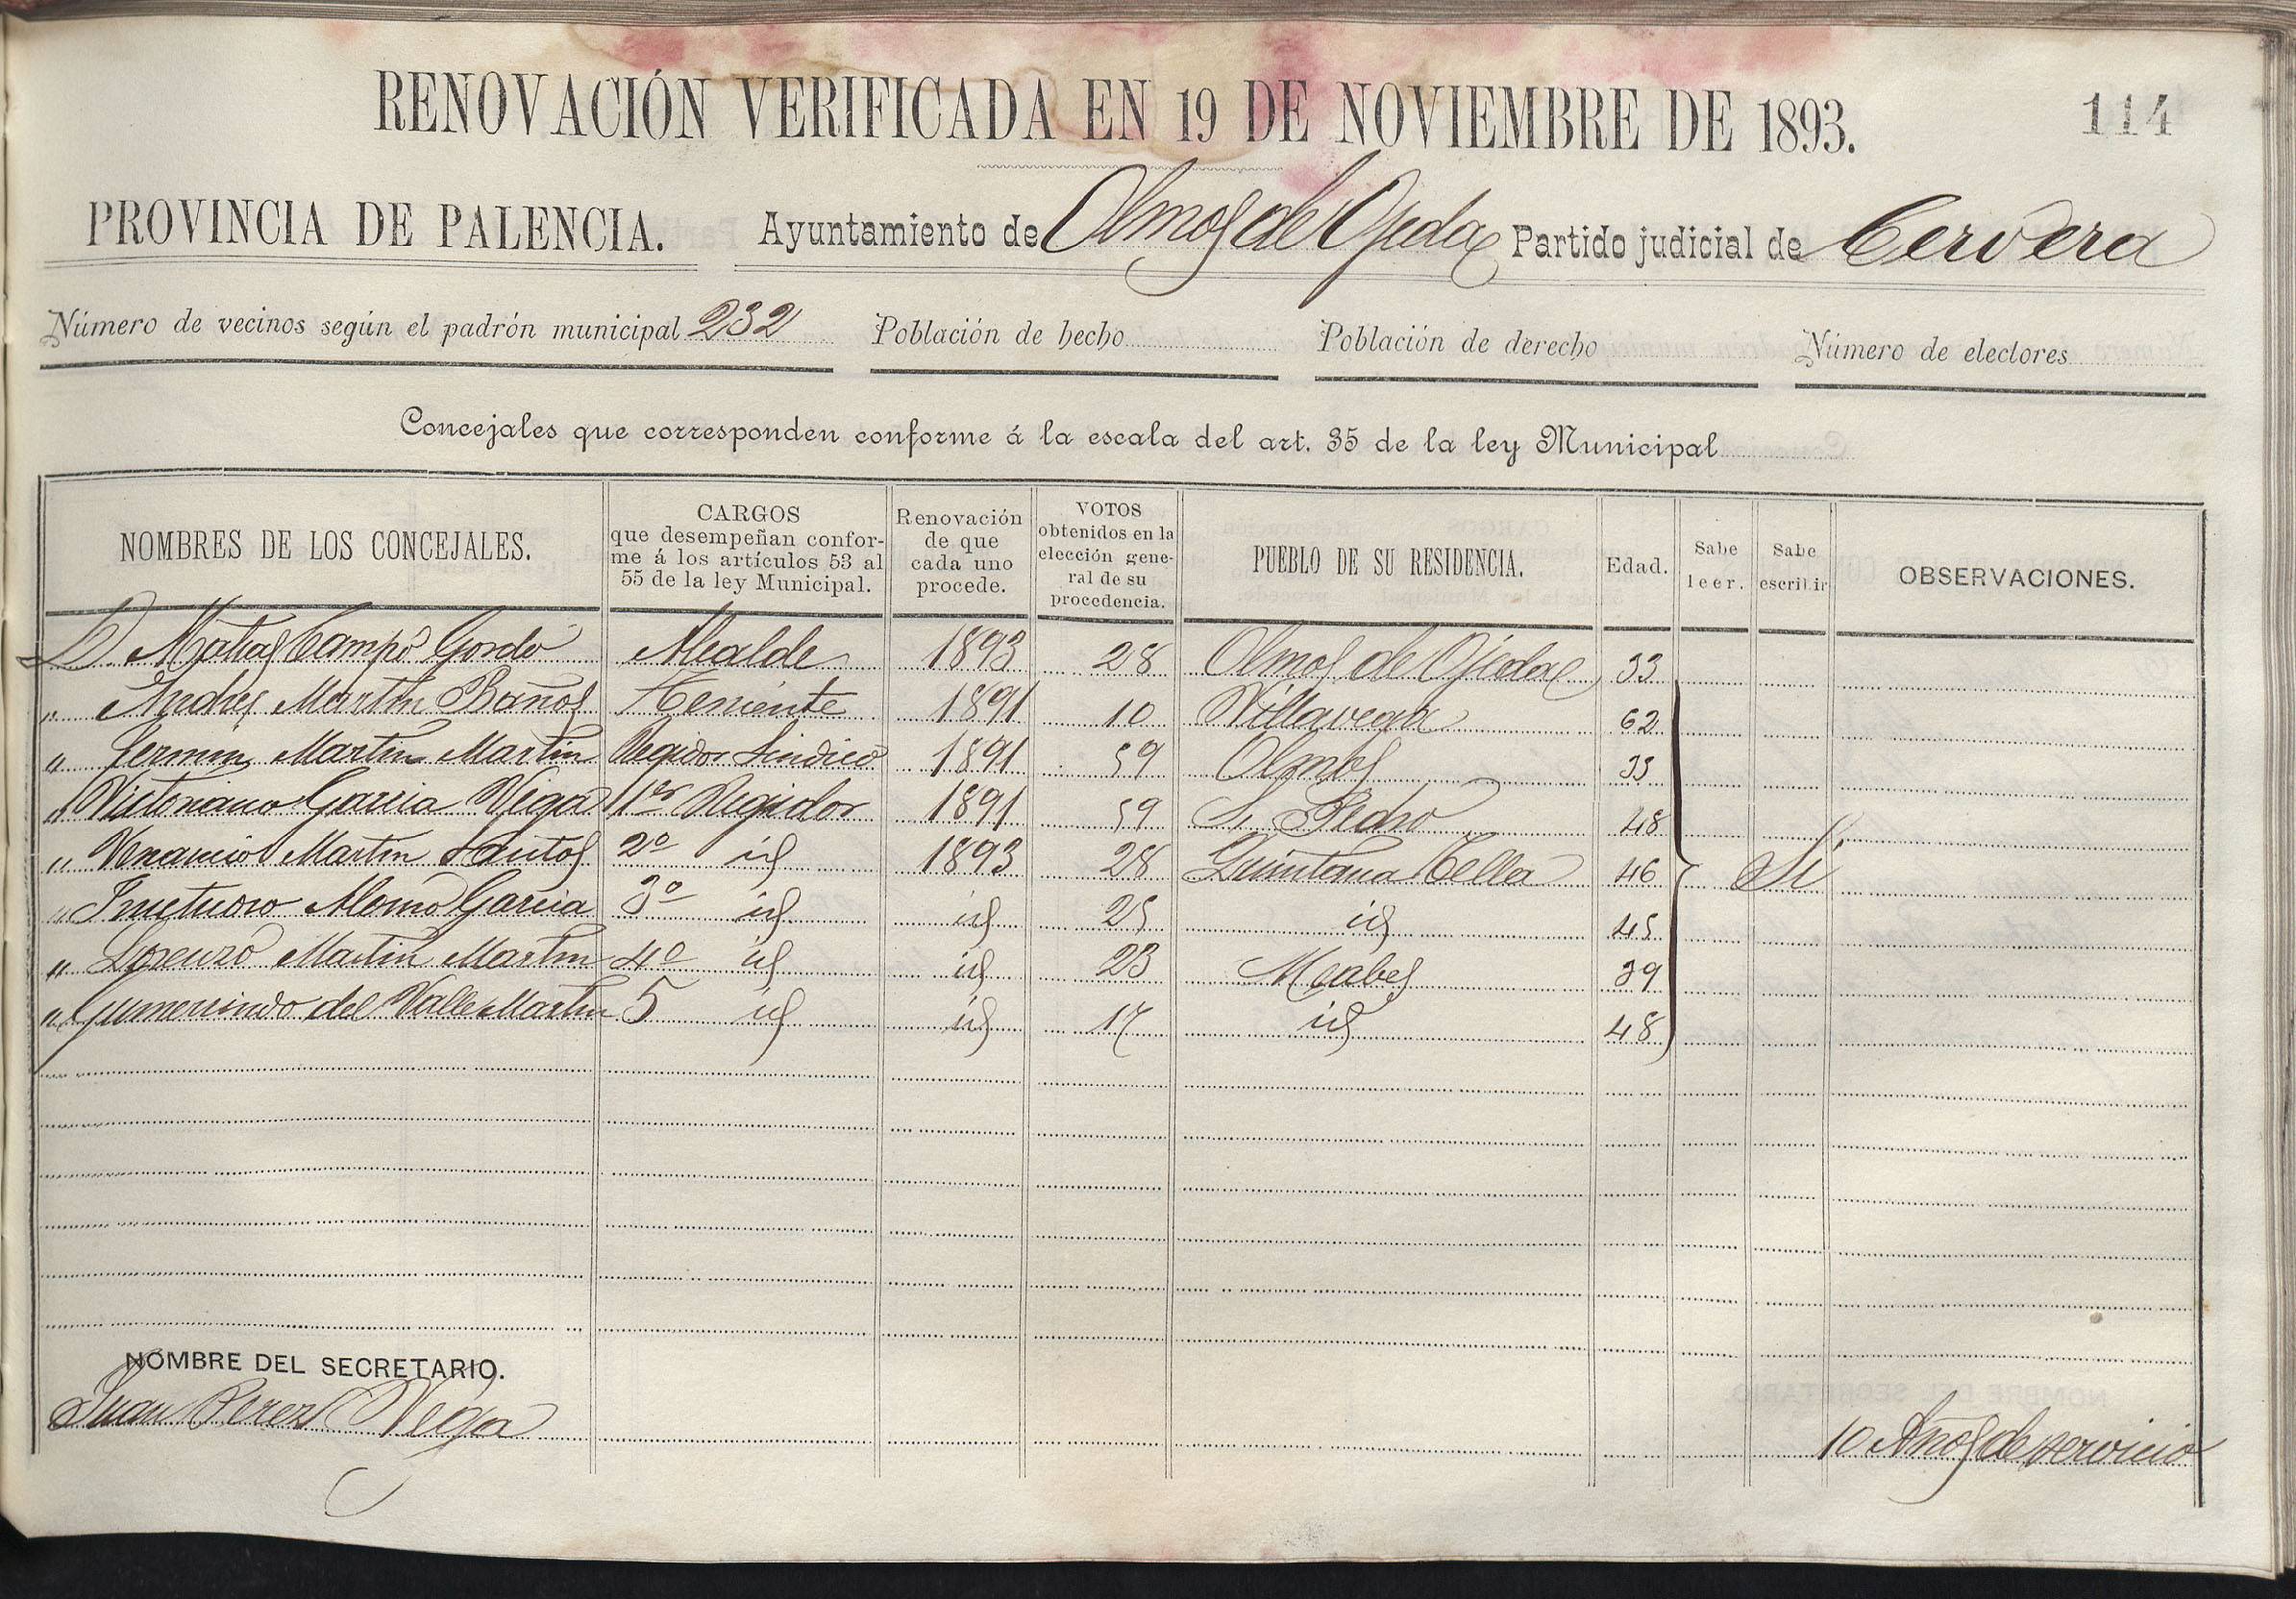 RENOVACIÓN VERIFICADA EN 19 DE NOVIEMBRE DE 1893.
114
PROVINCIA DE PALENCIA. Ayuntamiento de Olmos de Ojeda Partido judicial de Cervera
Número de vecinos según el padrón municipal 232 Población de hecho Población de derecho Número de electores
Concejales que corresponden conforme á la escala del art. 35 de la ley Municipal
NOMBRES DE LOS CONCEJALES. CARGOS que desempeñan conforme á los artículos 53 al 55 de la ley Municipal. Renovación de que cada uno procede. VOTOS obtenidos en la elección general de su procedencia. PUEBLO DE SU RESIDENCIA. Edad. Sabe leer. Sabe escribir OBSERVACIONES.
D. Matias Campo Gordo Alcalde 1893 28 Olmos de Ojeda 33
" Andres Martin Baños Teniente 1891 10 Villavega 62
" Fermin Martin Martin Regidor Sindico 1891 59 Olmos 33
" Victoriano Garcia Vega 1er Regidor 1891 59 S. Pedro 48
" Venancio Martin Santos 2º id 1893 28 Quintana Tello 46 Si
" Fructuoso Alonso Garcia 3º id id 25 id 45
" Lorenzo Martin Martin 4º id id 23 Moabes 39
" Gumersindo del Valle Martin 5 id id 17 id 48
NOMBRE DEL SECRETARIO.
Juan Perez Vega 10 Años de servicio